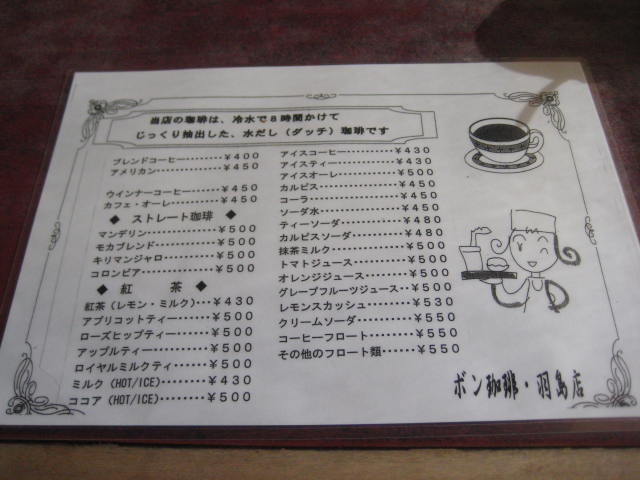 当店の珈琲は、冷水で8時間かけて
じっくり抽出した、水だし（ダッチ）珈琲です
ブレンドコーヒー････････￥400
アメリカン･･････････････￥450
ウインナーコーヒー･･････￥450
カフェ・オーレ･･････････￥450
◆ ストレート珈琲 ◆
マンデリン･･････････････￥500
モカブレンド････････････￥500
キリマンジャロ･･････････￥500
コロンビア･･････････････￥500
◆ 紅 茶 ◆
紅茶（レモン・ミルク）･･･￥430
アプリコットティー･･････￥500
ローズヒップティー･･････￥500
アップルティー･･････････￥500
ロイヤルミルクティ･･････￥500
ミルク（HOT/ICE）････････￥430
ココア（HOT/ICE）････････￥500
アイスコーヒー･･････････￥430
アイスティー････････････￥430
アイスオーレ････････････￥500
カルピス････････････････￥450
コーラ･･････････････････￥450
ソーダ水････････････････￥450
ティーソーダ････････････￥480
カルピスソーダ･･････････￥480
抹茶ミルク･･････････････￥500
トマトジュース･･････････￥500
オレンジジュース････････￥500
グレープフルーツジュース･･￥500
レモンスカッシュ････････￥530
クリームソーダ･･････････￥550
コーヒーフロート････････￥550
その他のフロート類･･････￥550
ボン珈琲・羽島店